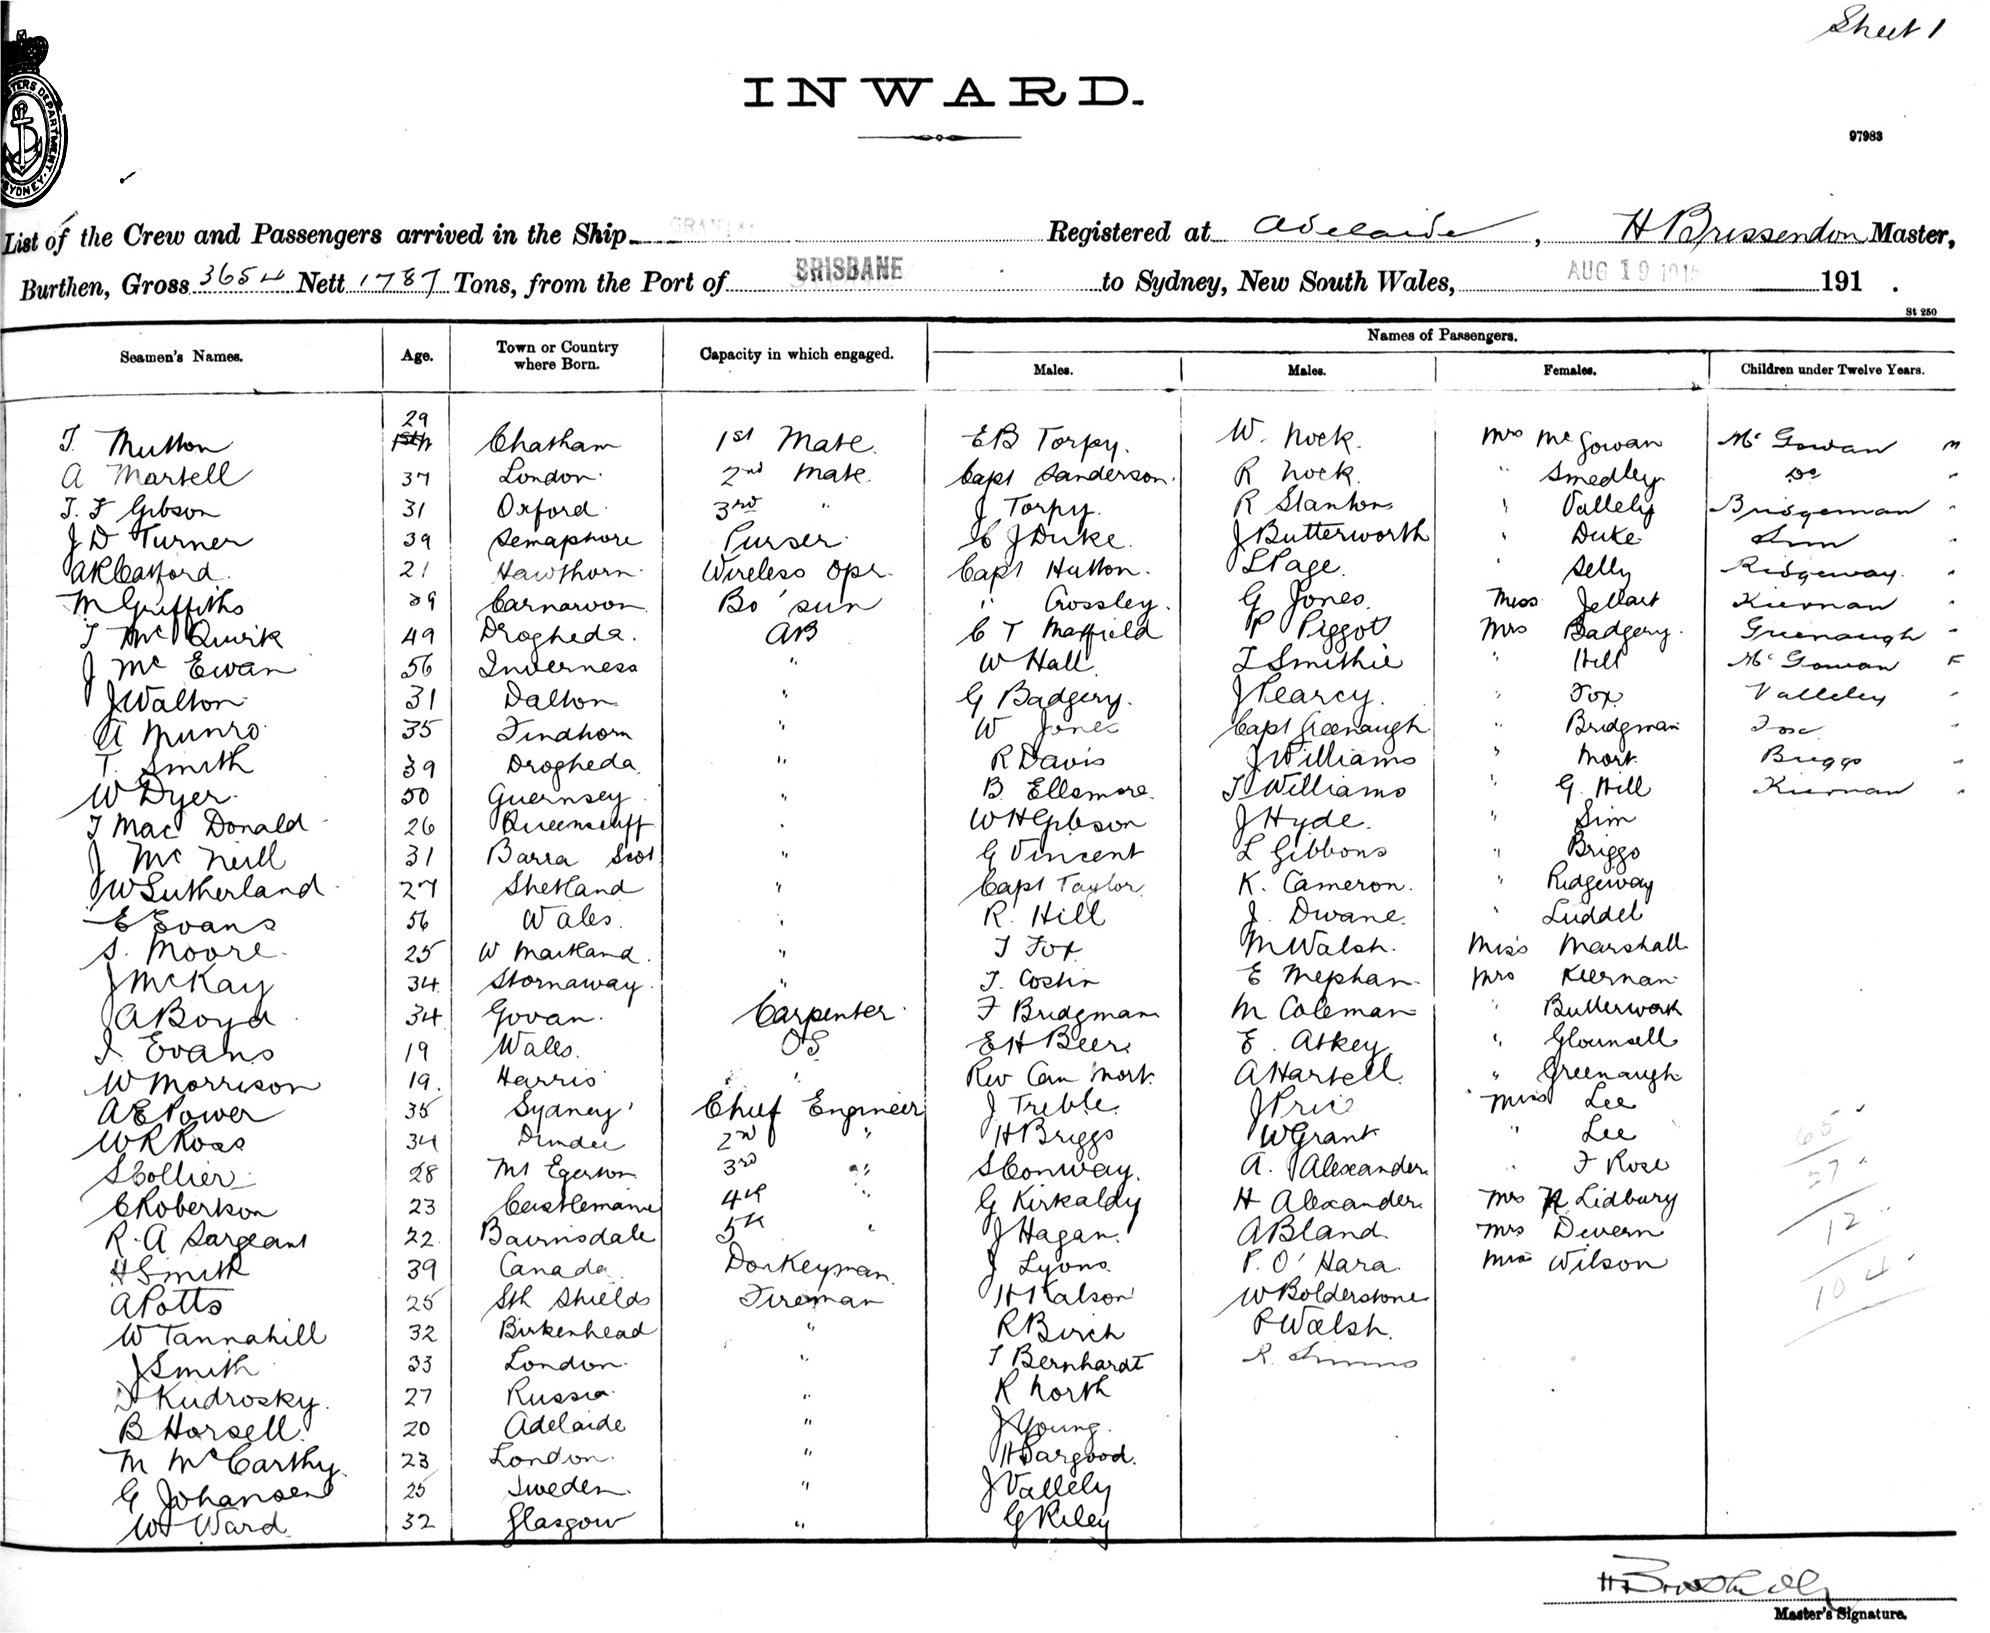 Sheet 1
INWARD.
97983
List of the Crew and Passengers arrived in the Ship Registered at Adelaide, H Brissendon Master,
Burthen, Gross 3654 Nett 1787 Tons, from the Port of BRISBANE to Sydney, New South Wales, AUG 19 1915 191 .
St 250
Names of Passengers.
Seamen's Names. Age. Town or Country where Born. Capacity in which engaged. Males. Males. Females. Children under Twelve Years.
29
T. Mutton Chatham 1st Mate. E B Torpy. W. Nock. Mrs McGowan Mc Gowan M
A Martell 37 London 2nd Mate. Capt Sanderson. R Nock. " Smedley Do "
T. F Gibson 31 Oxford 3rd " J Torpy. R Stanton " Vallely Bridgeman "
J D Turner 39 Semaphore Purser C J Duke. J Butterworth " Duke Sim "
A R Catford. 21 Hawthorn Wireless Opr. Capt Hutton. S Page. " Selly Ridgeway "
M Griffiths 39 Carnarvon Bo'sun " Crossley. G Jones. Miss Jellart Kiernan "
T Mc Quirk 49 Drogheda. AB C T Maxfield P Piggot Mrs Badgery. Greenaugh "
J Mc Ewan 56 Inverness " W Hall. T Smithie " Hill Mc Gowan F
J Walton 31 Dalton " G Badgery. J Pearcy. " Fox Valleley "
A Munro 35 Findhorn " W Jones Capt Greenaugh " Bridgman Fox "
T. Smith 39 Drogheda " R Davis J Williams " Mort Briggs "
W Dyer 50 Guernsey " B. Ellemore. T Williams " G. Hill Kiernan "
T Mac Donald 26 Queenscliff " W H Gibson J Hyde. " Sim
J Mc Neill 31 Barra Scot " G Vincent L Gibbons " Briggs
W Sutherland 27 Shetland " Capt Taylor K. Cameron. " Ridgeway
E Evans 56 Wales. " R. Hill J. Dwane. " Luddel
S. Moore 25 W Maitland. " T Fox M Walsh. Miss Marshall
J McKay 34 Stornaway. " T. Costin E Mephan. Mrs Kiernan
A Boyd 34 Govan. Carpenter F Bridgman M Coleman " Butterwork
J. Evans 19 Wales. OS E H Beer. E. Atkey " Glounsell
W Morrison 19. Harris " Rev Can Mort. A Hartell. " Greenaugh
A E Power 35 Sydney Chief Engineer J Treble. J Price Miss Lee
W R Ross 34 Dundee 2nd " H Briggs W Grant " Lee
S Collier 28 Mt Egerton 3rd " S Conway. A. Alexander " F Rose
C Robertson 23 Castlemaine 4th " G Kirkaldy H Alexander Mrs H Lidbury
R. A Sargeant 22 Bairnsdale 5th " J Hagan. A Bland Mrs Devern
H Smith 39 Canada Donkeyman J Lyons P. O'Hara. Miss Wilson
A Potts 25 Sth Shields Fireman H Kalson W Bolderstone
W Tannahill 32 Birkenhead " R Birch P Walsh.
J Smith 33 London " T Bernhardt R. Simms
D Kudrosky. 27 Russia " R North
B Horsell. 20 Adelaide " J Young.
M McCarthy. 23 London " H Sargood.
G Johansen 25 Sweden " J Vallely
W Ward 32 Glasgow " G Riley
65
27
12
104
Master's Signature.